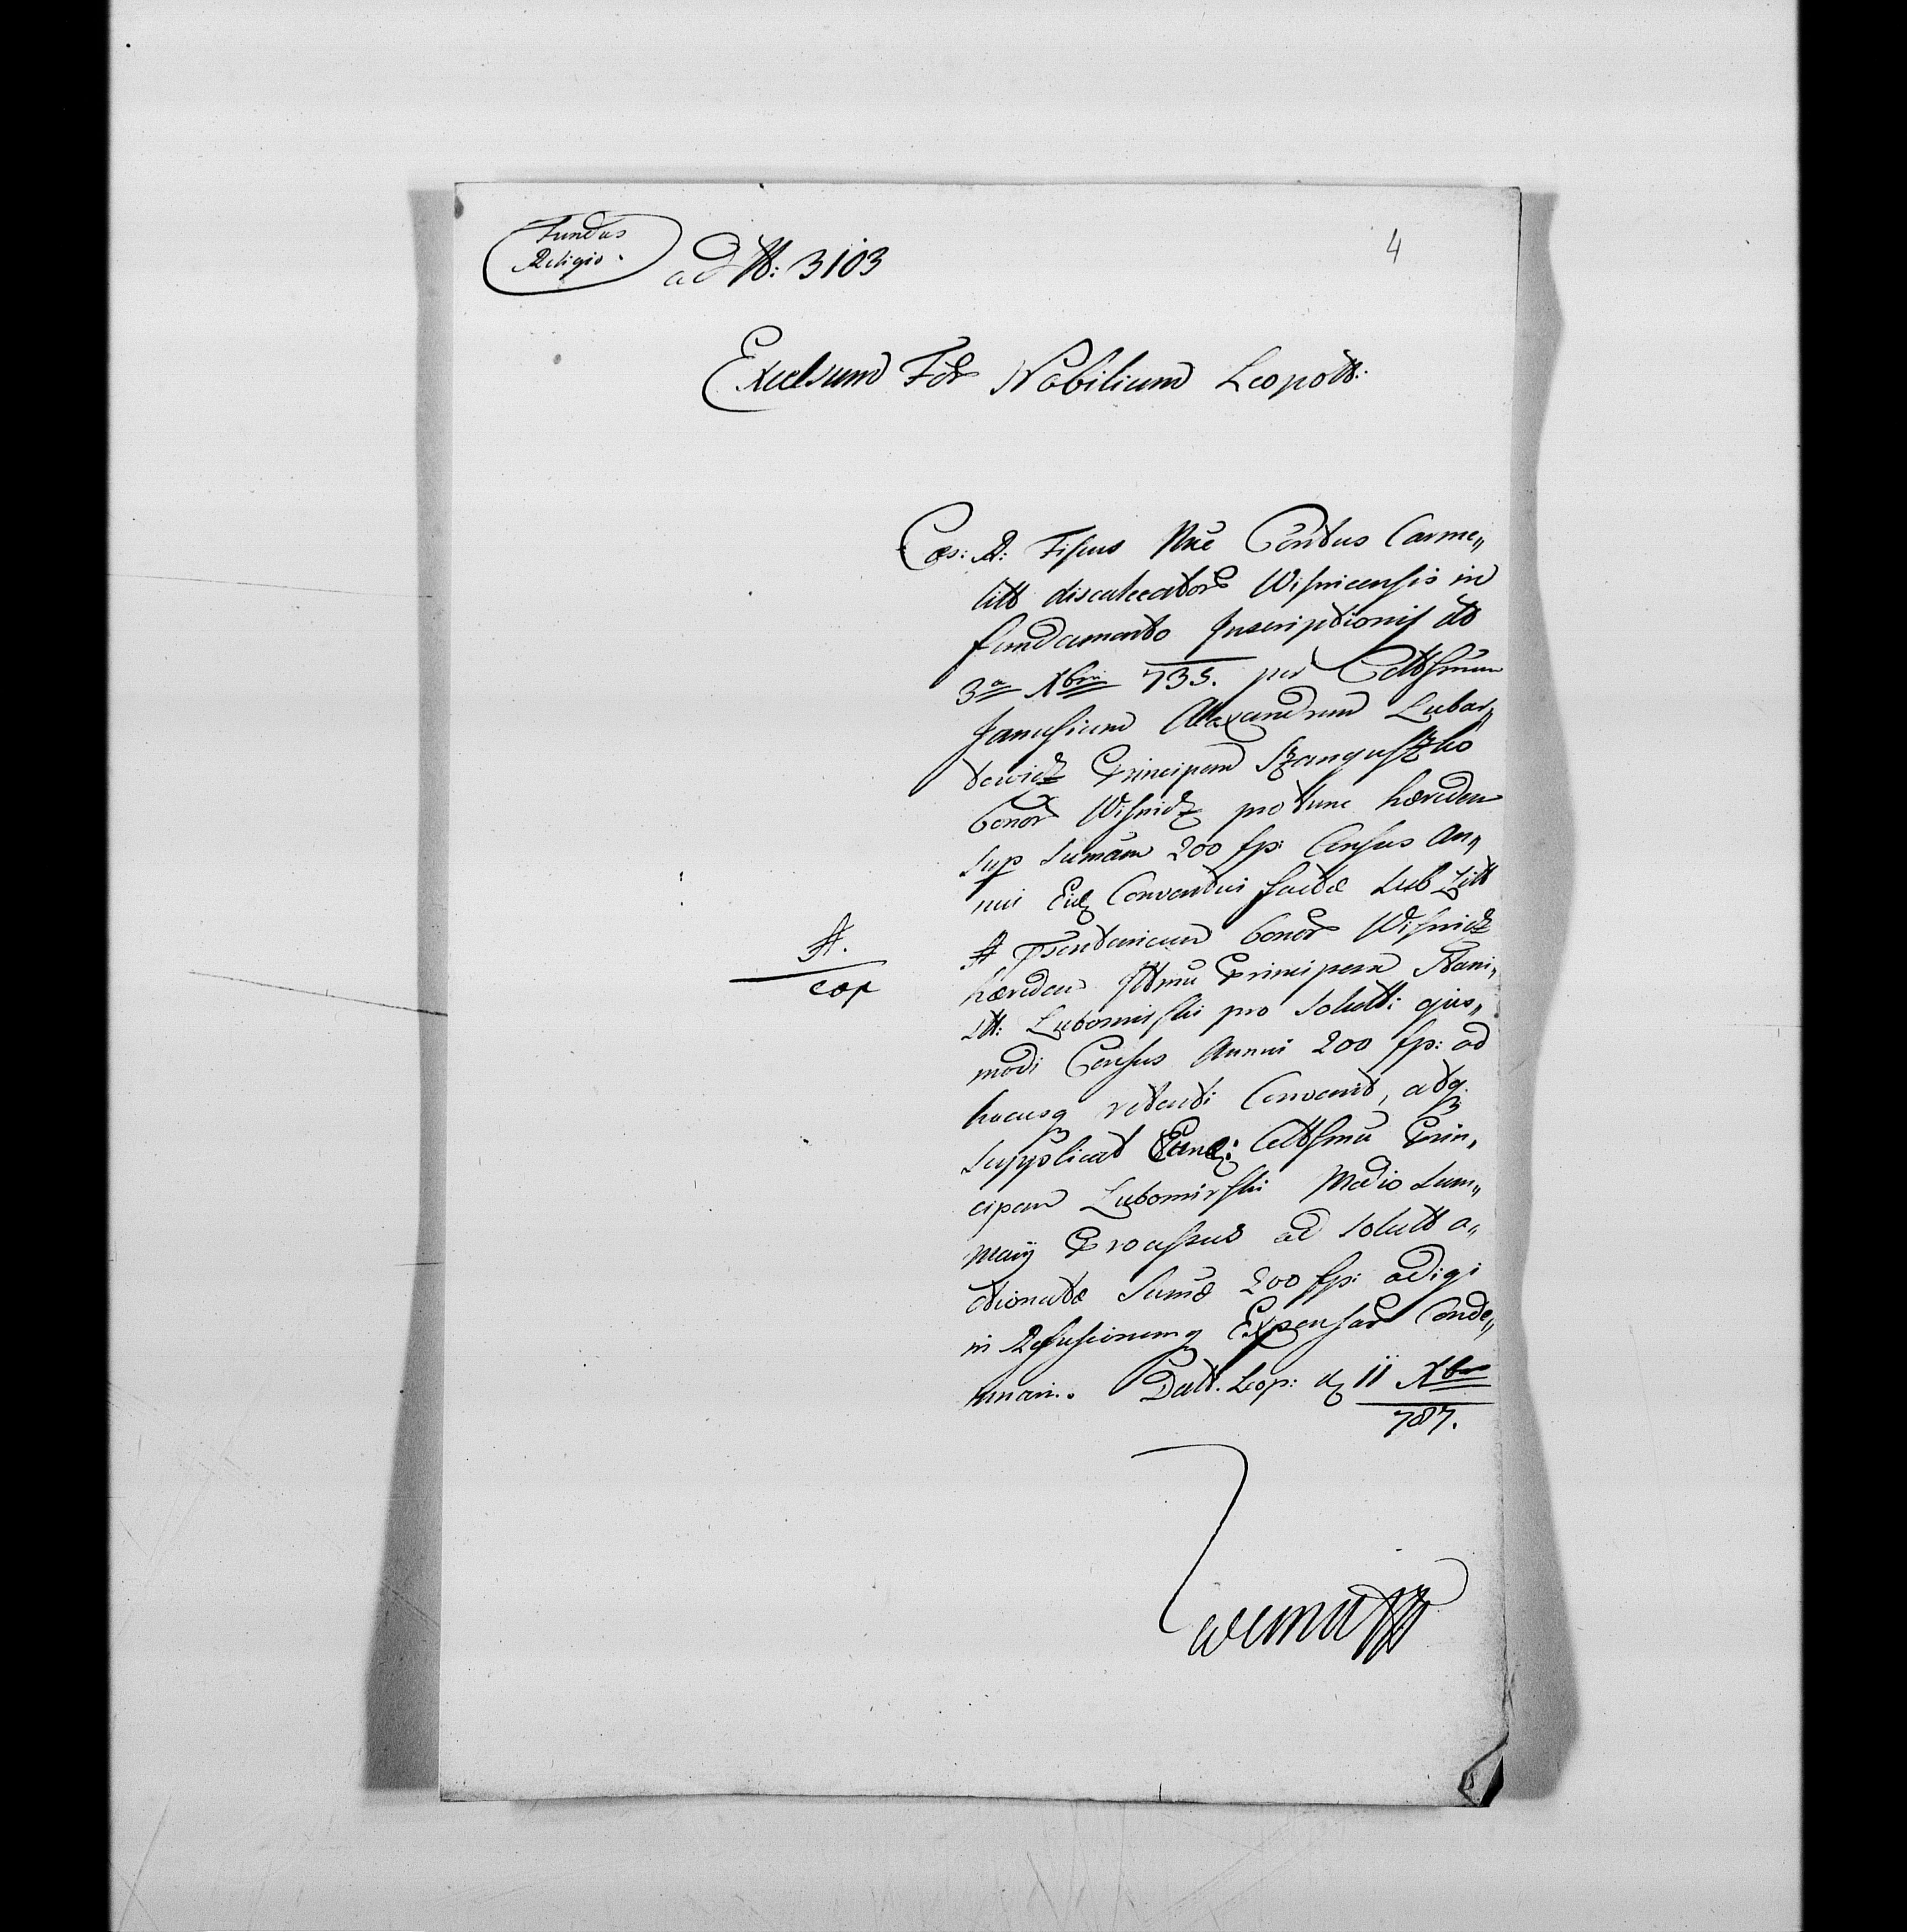 Fundus
Religio.
ad N: 3103
4
Excelsum For Nobilium Leopoll:
Cæs: R: Fiscus Nne Contus Carme„
litt discalceator Wisnicensis in
fundamento Inscriptionis dd
3a Xbris 735. per Celssimum
Janussium Alexandrum Lubar„
towicz Principem Szanguszko
bonor Wisnicz pro tunc hæredem
sup summam 200 fp: Census An„
nui Eid Conventui factæ sub Litt
A. psentaneum bonor Wisnicz
A.
cop
hæredem Illmu Principem Stani„
sll: Lubomirski pro solutt: ejus„
modi Census Annui 200 fp: ad
hucusq retenti Convenit, atq
supplicat Eund: Celssimu Prin„
cipem Lubomirski Medio Sum„
marij Processus ad solutt a„
ctionatæ Sumæ 200 fp: adigi
in Refusionemq Expensar Conde„
mnari. Datt. Leop: d 11 Xbr
787.